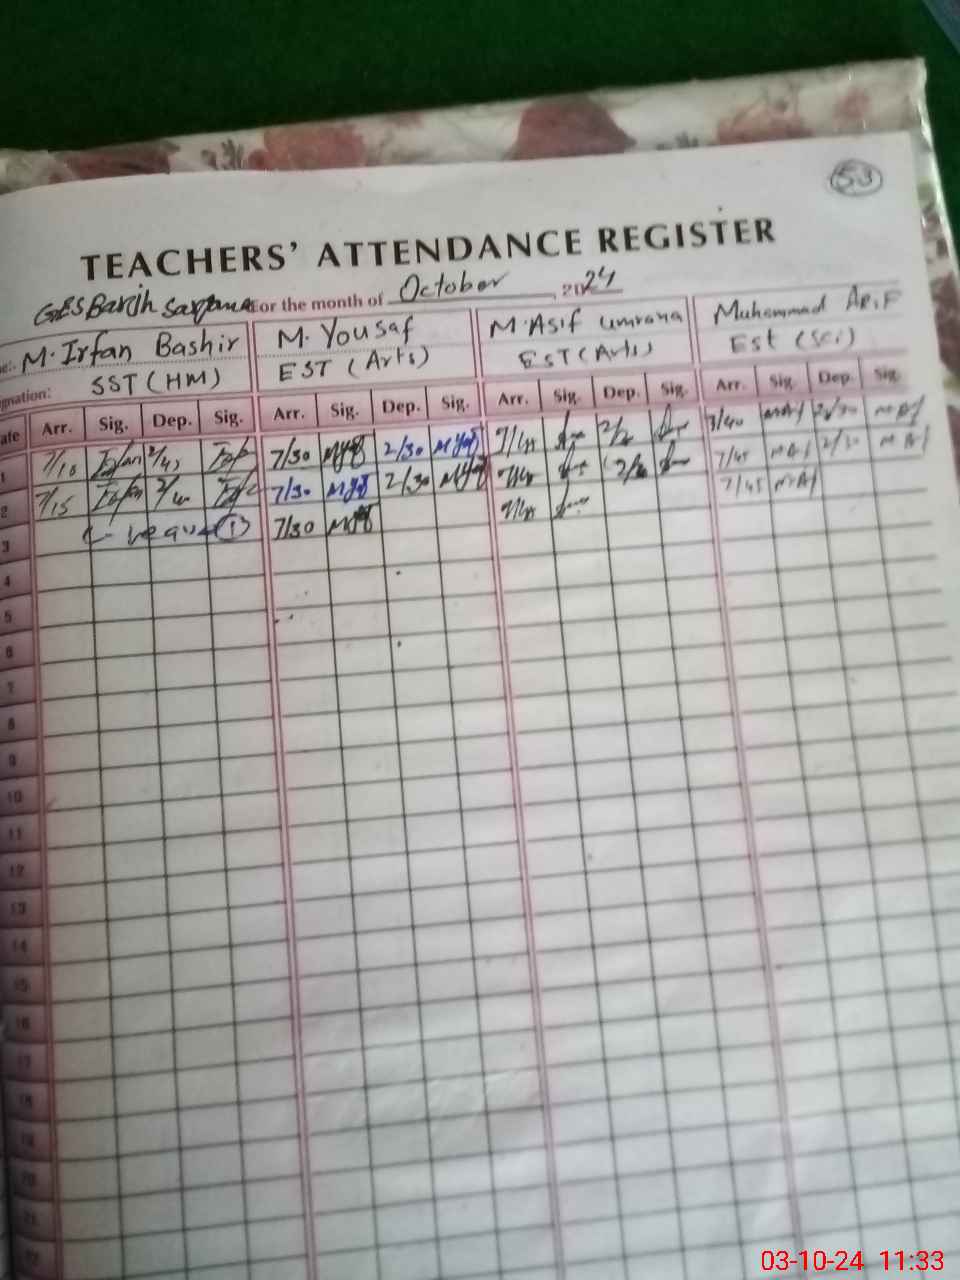 53
TEACHERS' ATTENDANCE REGISTER
GES Barjh For the month of October 2024
M. Irfan Bashir M. Yousaf M. Asif umrana Muhammad ARIF
gnation: SST (HM) EST (Arts) EST (Arts) Est (Sci)
ate Arr. Sig. Dep. Sig. Arr. Sig. Dep. Sig. Arr. Sig. Dep. Sig. Arr. Sig. Dep. Sig.
1 7/10 Irfan 2/45 7/30 MYf 2/30 MYf 7/40 MA/ 2/30 MA/
2 7/15 Irfan 2/40 7/30 MYf 2/30 MYf 7/45 MA/ 2/30 MA/
3 Leave 1 7/30 MYf 7/45 MA/
4
5
6
7
8
9
10
11
12
13
14
15
16
17
18
19
20
21
22
03-10-24 11:33